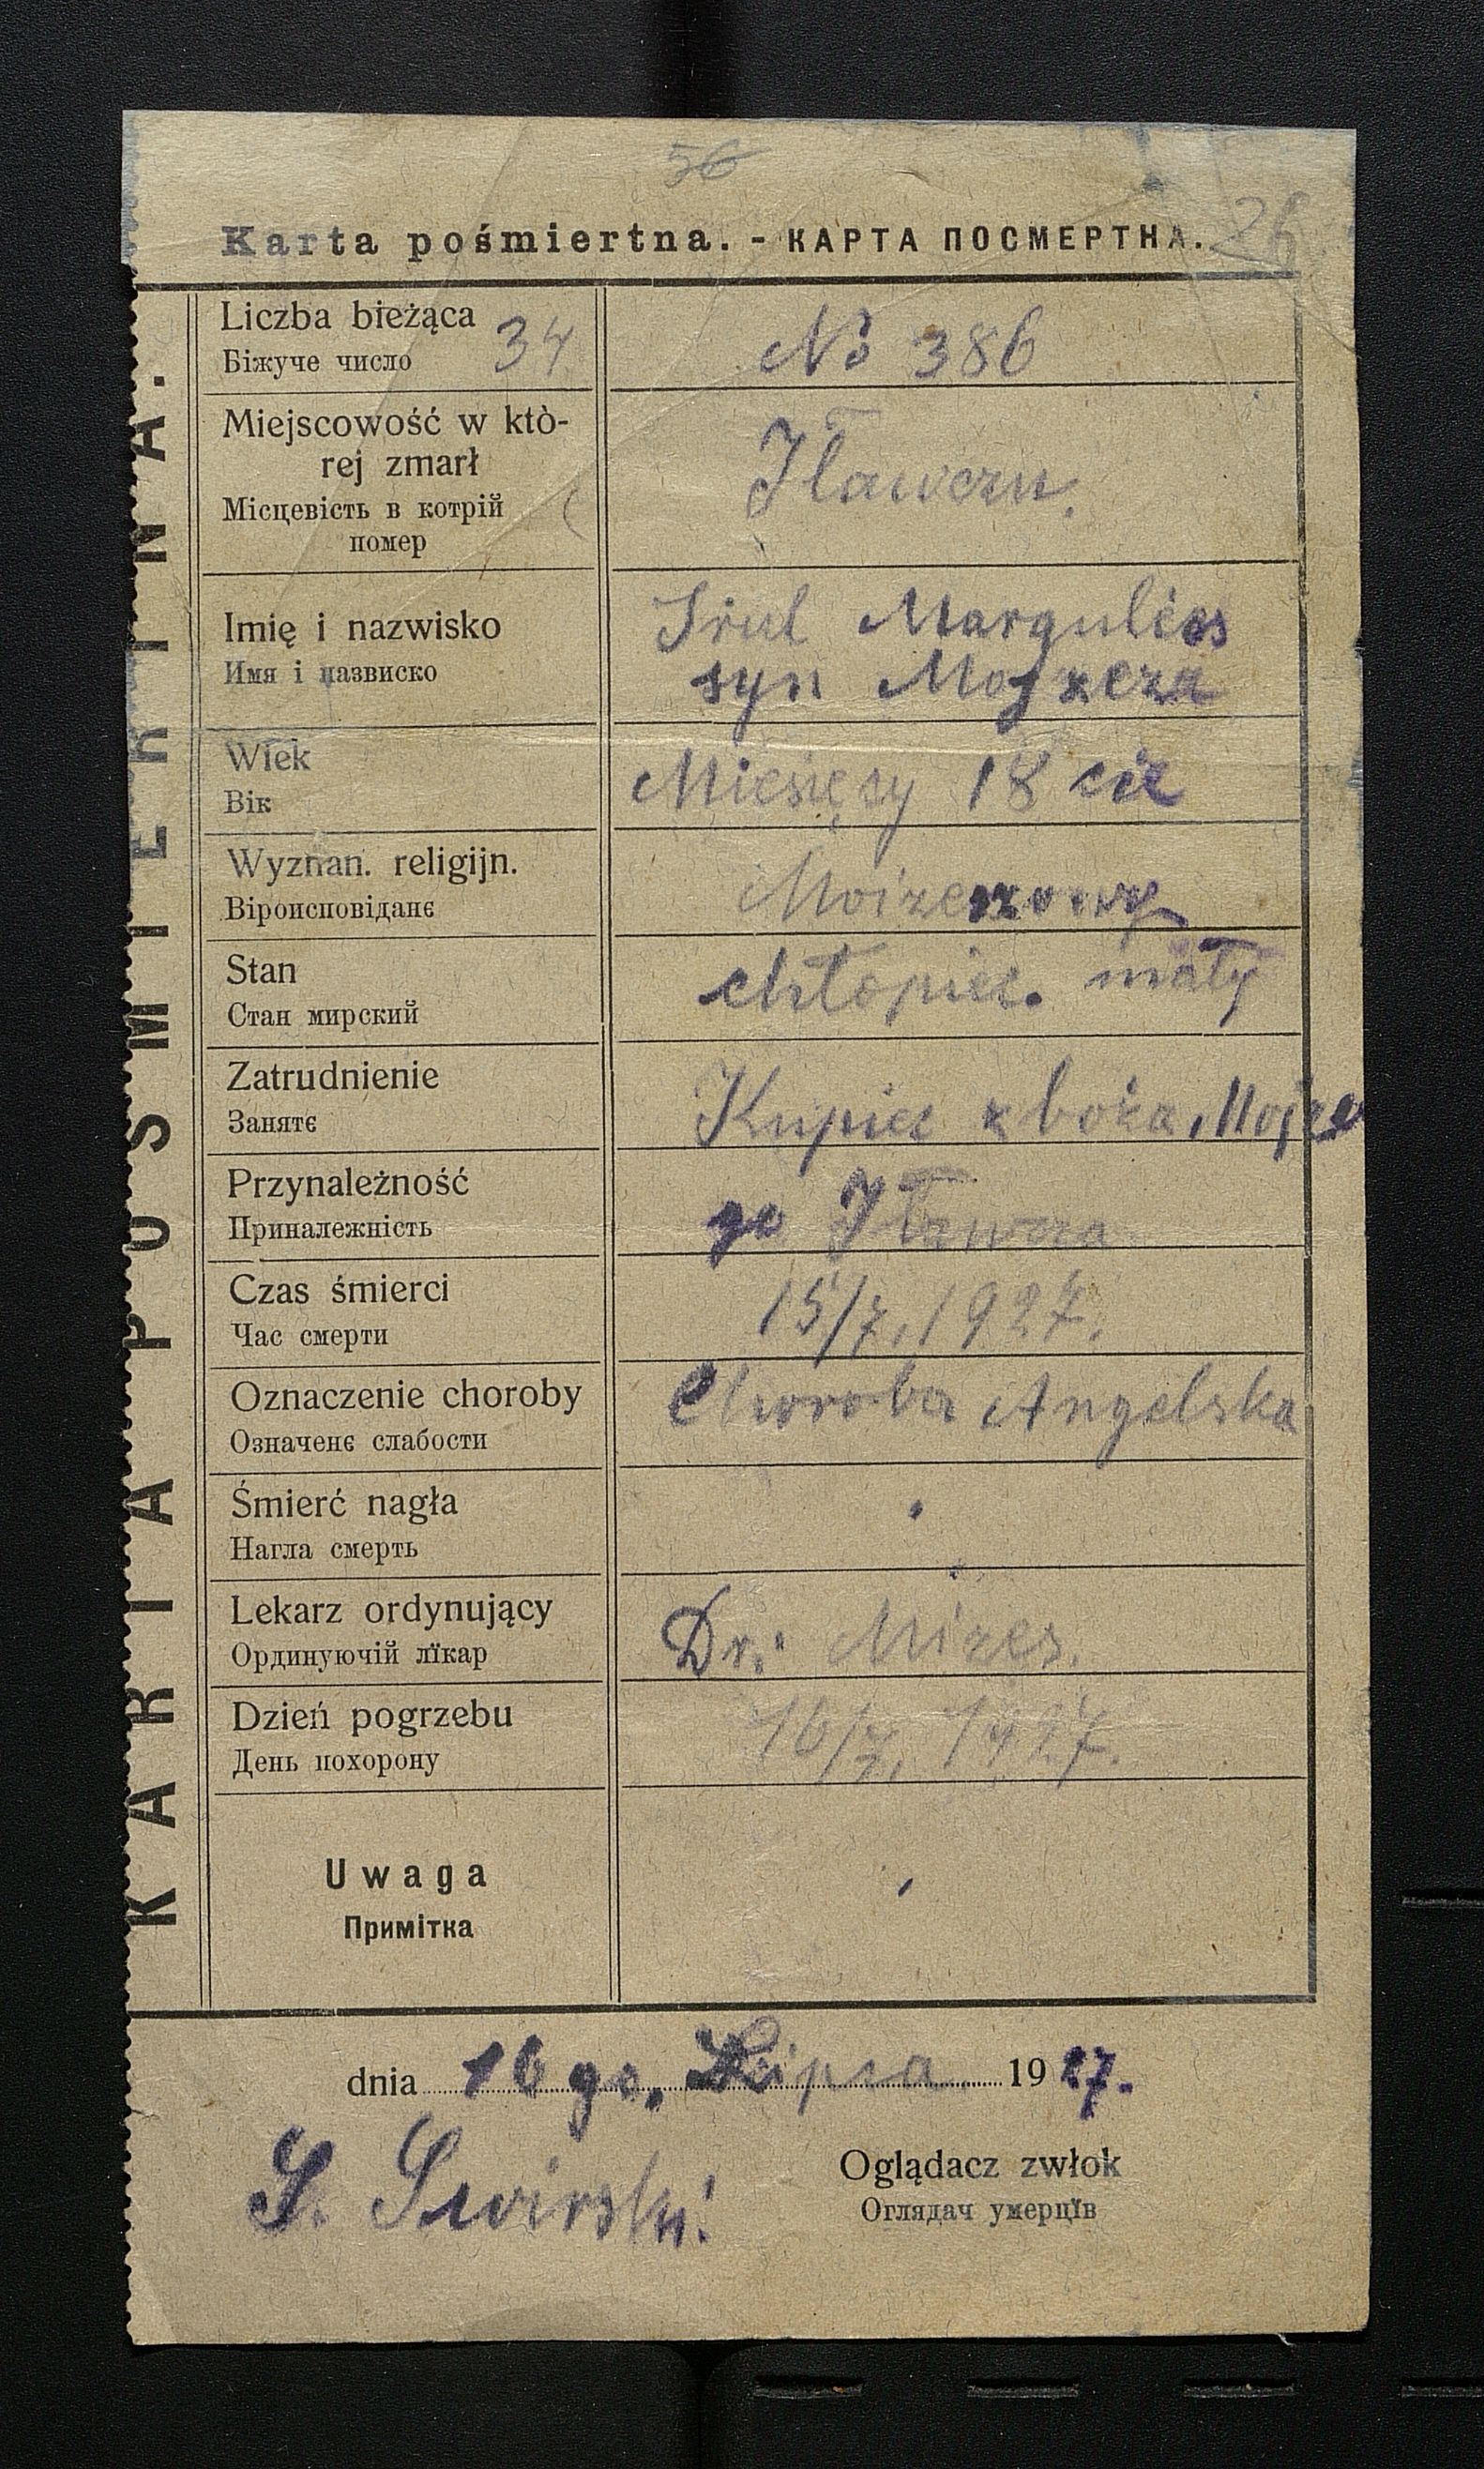 56
26
Karta pośmiertna. - КАРТА ПОСМЕРТНА.
KARTA POŚMIERTNA.
Liczba bieżąca 34 No 386
Біжуче число
Miejscowość w któ-
rej zmarł
Місцевість в котрій
помер
Iławczu.
Imię i nazwisko
Имя і пазвиско
Srul Margulies
syn Mojżesza
Wiek
Вік
Miesięcy 18 cie
Wyznan. religijn.
Віроисповіданє
Moizeszowy
Stan
Стан мирский
chłopiec. mały
Zatrudnienie
Занятє
Kupiec zboża, Mojże
Przynależność
Приналежність
go Iławcza
Czas śmierci
Час смерти
15/7. 1927.
Oznaczenie choroby
Означенє слабости
Choroba Angelska
Śmierć nagła
Нагла смерть
Lekarz ordynujący
Ординуючій лїкар
Dr. Mizes.
Dzień pogrzebu
День похорону
16/7. 1927.
Uwaga
Примітка
dnia 16 go. Lipca 1927.
S. Swirski
Oglądacz zwłok
Оглядач умерцїв